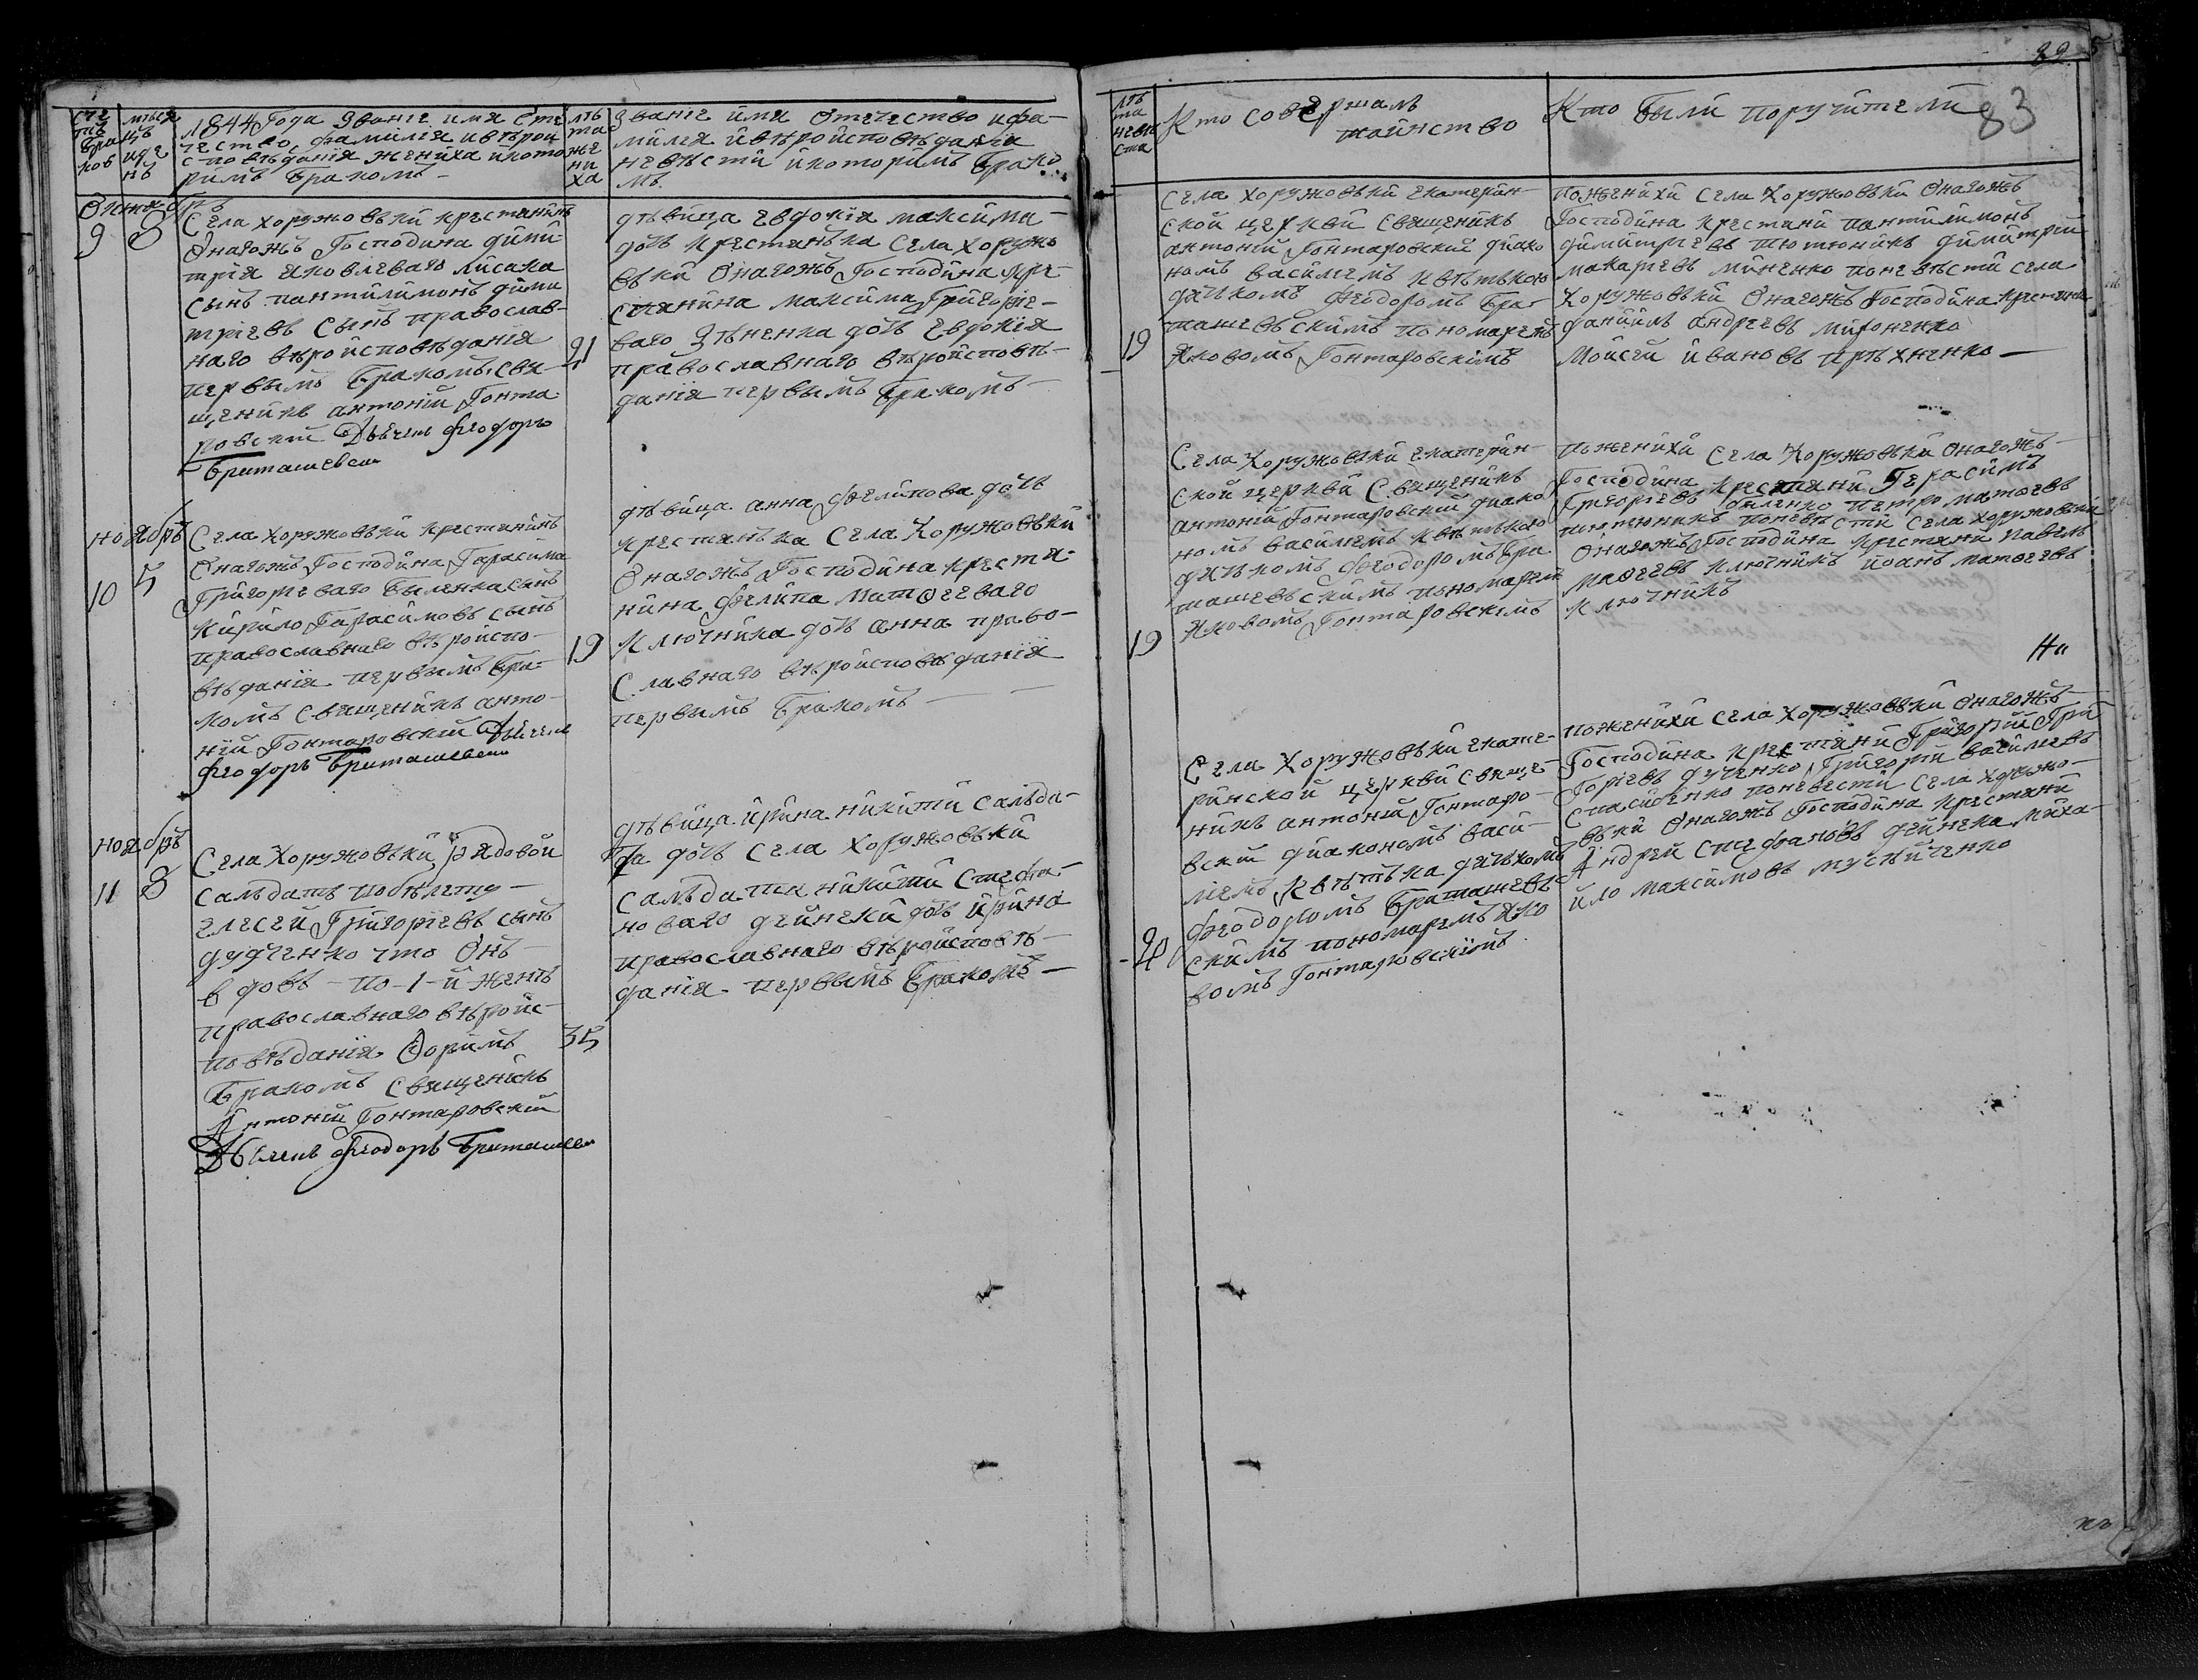 82
83
сче
тъ
бра
ков
мѣся
цъ
иде
нь
1844 Года Званіе имя Оте
чество, фамилія ивѣрои
споведанія жениха икото
римъ бракомъ
лѣ
та
же
ни
ха
Званіе имя Отечество ифа-
милія ивѣроисповѣданія
невѣсти икоторимъ брако
мъ
лѣ
та
невѣ
ста
Кто совершалъ
таинство
Кто были поручители
Октябрь
9 8
Села Хоружовки крестянинъ
Онагожъ Господина дими
трія яковлеваго лисака
сынъ пантилимонъ дими
тріевъ сынъ православ-
наго вѣроисповѣданія
первымъ бракомъ свя-
щеникъ антоній Гонта
ровскій Дьячекъ феодоръ
Браташевск
21
дѣвица евдокія максима
дочь крестянька села хоружо
вки Онагожъ Господина кре-
стянина максима Григоріе-
ваго Зѣненка дочь евдокія
православнаго вѣроисповѣ-
данія первымъ бракомъ
19
Села хоружовки екатерин-
ской церкви священикъ
антоній Гонтаровский диако
номъ василемъ
дячкомъ феодоромъ Бра-
ташевскимъ пономаремъ
Яковомъ Гонтаровскімъ
поженихи села Хоружовки Онагожъ
Господина крестяни пантилимонъ
димитріевъ тютюникъ димитрій
макаріевъ миненко поневѣсти села
Хоружовки Онагожъ Господина крестяни
даниилъ андреевъ мироненко
Мойсей ивановъ
ноябрь
10 5
Села Хоружовки крестянинъ
Онагожъ Господина Гарасима
Григоріеваго Быленка сынъ
Кирило Гарасимовъ сынъ
православнаго вѣроиспо-
вѣданія первымъ бра-
комъ священикъ анто-
ній Гонтаровский Дьячекъ
феодоръ Браташевск
19
дѣвица анна фелипова дочь
крестянька села Хоружовки
Онагожъ Господина крестя-
нина фелипа матѳееваго
Ключника дочь анна право-
славнаго вѣроисповѣданія
первымъ бракомъ
19
Села Хоружовки екатерин-
ской церкви священикъ
антоній Гонтаровский диако
номъ василемъ
дячкомъ феодоромъ Бра-
ташевскимъ пономаремъ
Яковомъ Гонтаровскимъ
поженихи села Хоружовки Онагожъ
Господина крестяни Герасимъ
Григоріевъ Биленко петро матѳеевъ
тютюникъ поневѣсти села Хоружовки
Онагожъ Господина крестяни павелъ
матѳеевъ ключникъ иоанъ матѳеевъ
Ключникъ
Но
ноябрь
11 8
Села Хоружовки рядовой
салдатъ побѣлету
елесей Григоріевъ сынъ
дудченко что Онъ
вдовъ по 1-й женѣ
православнаго вѣроис-
повѣданія Вторимъ
бракомъ священикъ
Антоній Гонтаровскій
Дьячекъ феодоръ Браташевск
35
дѣвица ирина никити салда-
та дочь села Хоружовки
салдата никити стефа-
новаго дейнеки дочь ирина
православнаго вѣроисповѣ-
данія первымъ бракомъ
20
Села Хоружовки екате-
ринской церкви свяще-
никъ антоній Гонтаро-
вскій диакономъ васи-
лемъ дячкомъ
феодоромъ Браташев-
скимъ пономаремъ Яко
вомъ Гонтаровскімъ
поженихи села Хоружовки Онагожъ
Господина крестяни Григорій Гри
горіевъ Григорій василевъ
поневести села хоружо-
вки Онагожъ Господина крестяни
Андрей стефановъ дейнека миха-
ило максимовъ мусѣиченко